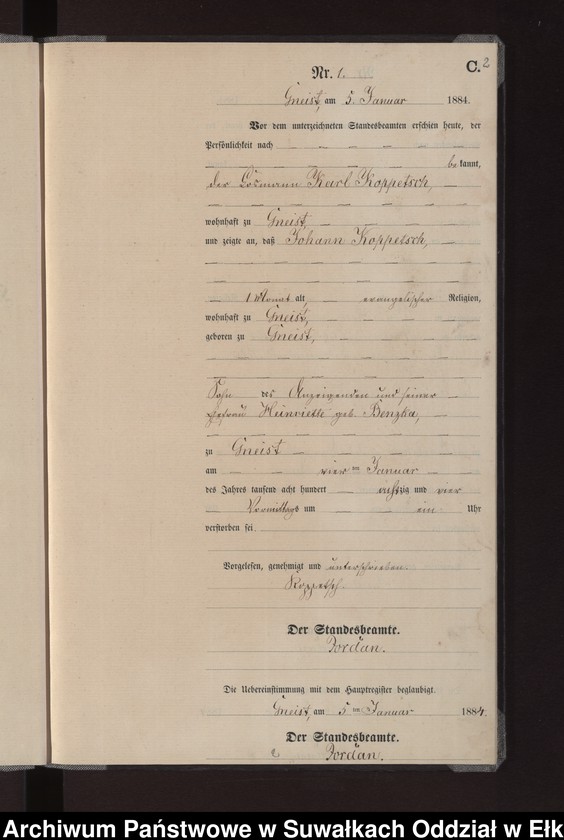 C. 2
Nr. 1.
Gneist, am 5. Januar 1884.
Vor dem unterzeichneten Standesbeamten erschien heute, der
Persönlichkeit nach
bekannt,
der Losmann Karl Koppetsch,
wohnhaft zu Gneist,
und zeigte an, daß Johann Koppetsch,
1 Monat alt, evangelischer Religion,
wohnhaft zu Gneist,
geboren zu Gneist,
Sohn des Anzeigenden und seiner
Ehefrau Heinriette geb. Benzka,
zu Gneist
am vier ten Januar
des Jahres tausend acht hundert achtzig und vier
Vormittags um ein Uhr
verstorben sei.
Vorgelesen, genehmigt und unterschrieben.
Koppetsch.
Der Standesbeamte.
Jordan.
Die Uebereinstimmung mit dem Hauptregister beglaubigt.
Gneist, am 5 ten Januar 1884.
Der Standesbeamte.
Jordan.
Archiwum Państwowe w Suwałkach Oddział w Ełku